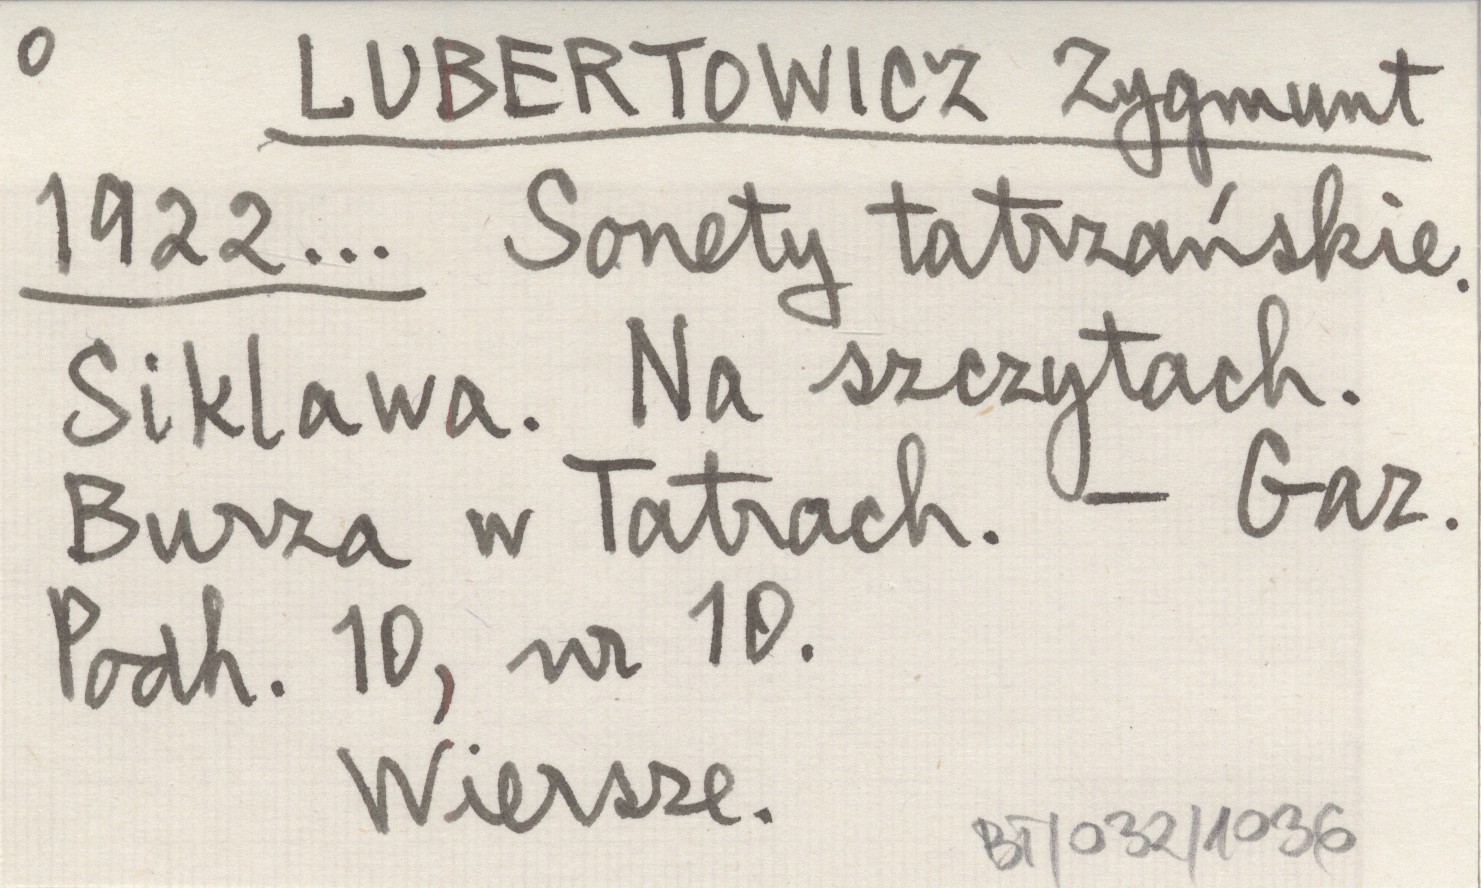 o LUBERTOWICZ Zygmunt
1922... Sonety tatrzańskie.
Siklawa. Na szczytach.
Burza w Tatrach. — Gaz.
Podh. 10, nr 10.
Wiersze.
BT/032/1036